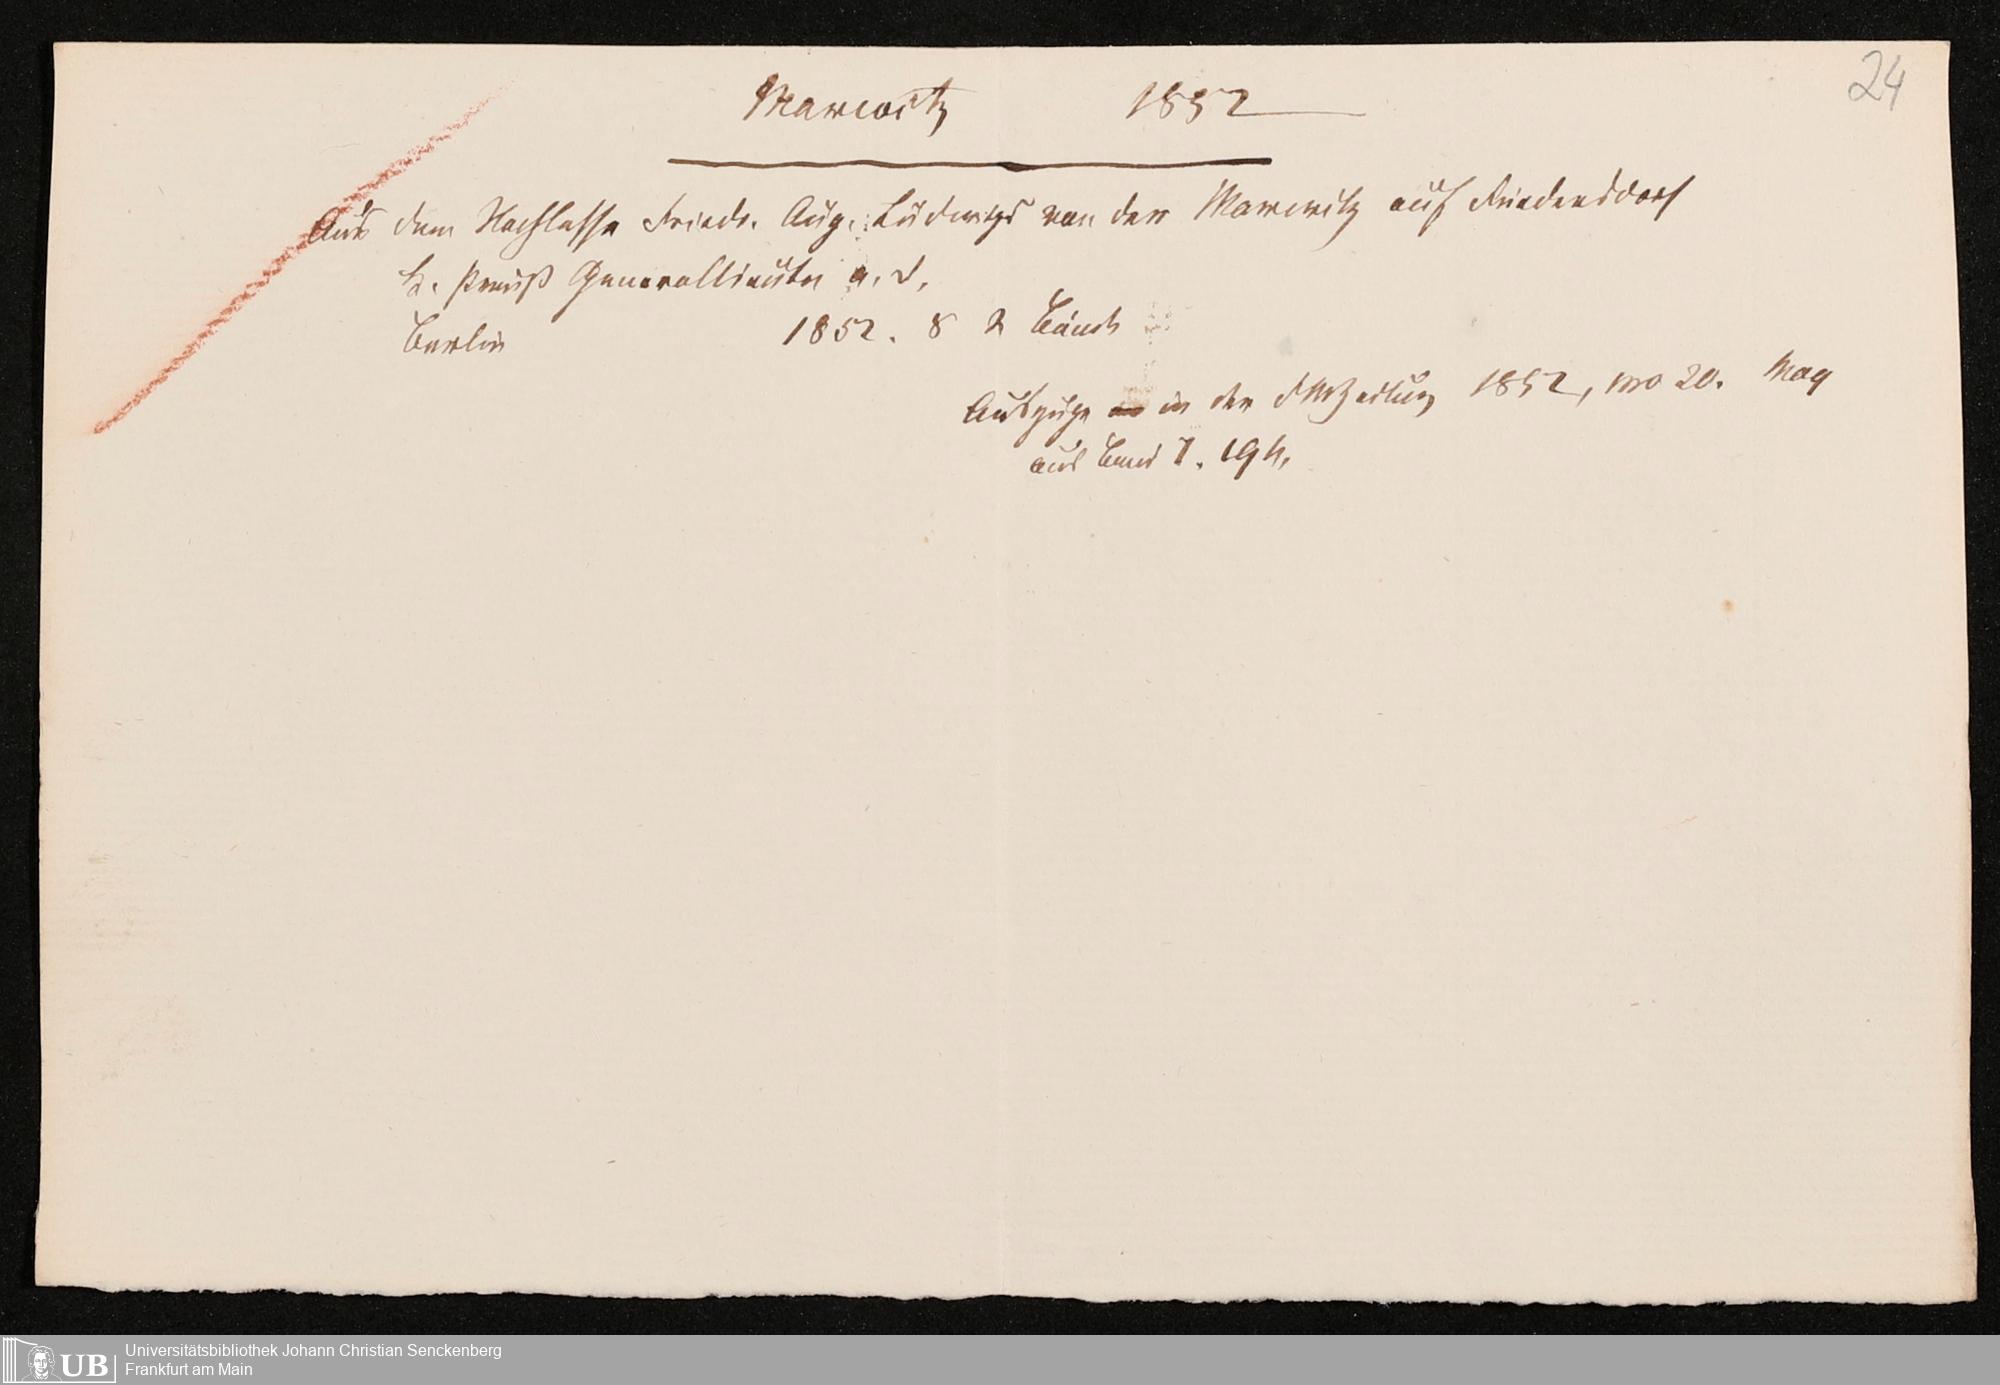 24
Marwitz 1852
Aus dem Nachlasse Friedr. Aug. Ludwigs von der Marwitz auf Friedersdorf
k. Preuß Generallieuten a. D.
Berlin 1852. 8 2 Bände
Auszüge in der Zeitung 1852, nro 20. Mag
aus Band I. 194.
Universitätsbibliothek Johann Christian Senckenberg
Frankfurt am Main
UB